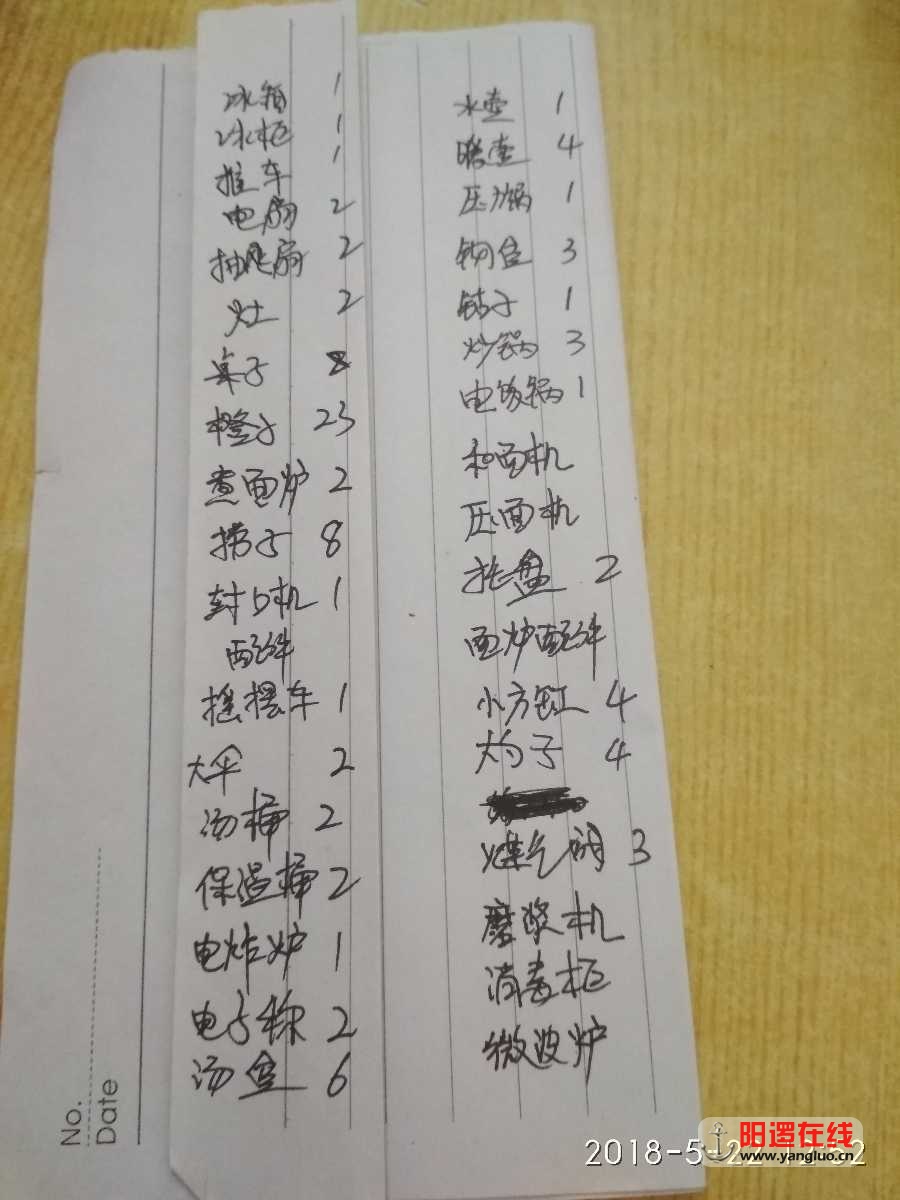 冰箱 1
冰柜 1
推车 1
电扇 2
抽风扇 2
灶 2
桌子 8
橙子 23
煮面炉 2
捞子 8
封口机 1
配件
摇摆车 1
大伞 2
汤桶 2
保温桶 2
电炸炉 1
电子称 2
汤盒 6
水壶 1
暖壶 4
压力锅 1
3
1
炒锅 3
电饭锅 1
和面机
压面机
托盘 2
面炉配件
小方缸 4
大勺子 4
煤气阀 3
磨浆机
消毒柜
微波炉
No.
Date
2018-5-22
阳逻在线
www.yangluo.cn